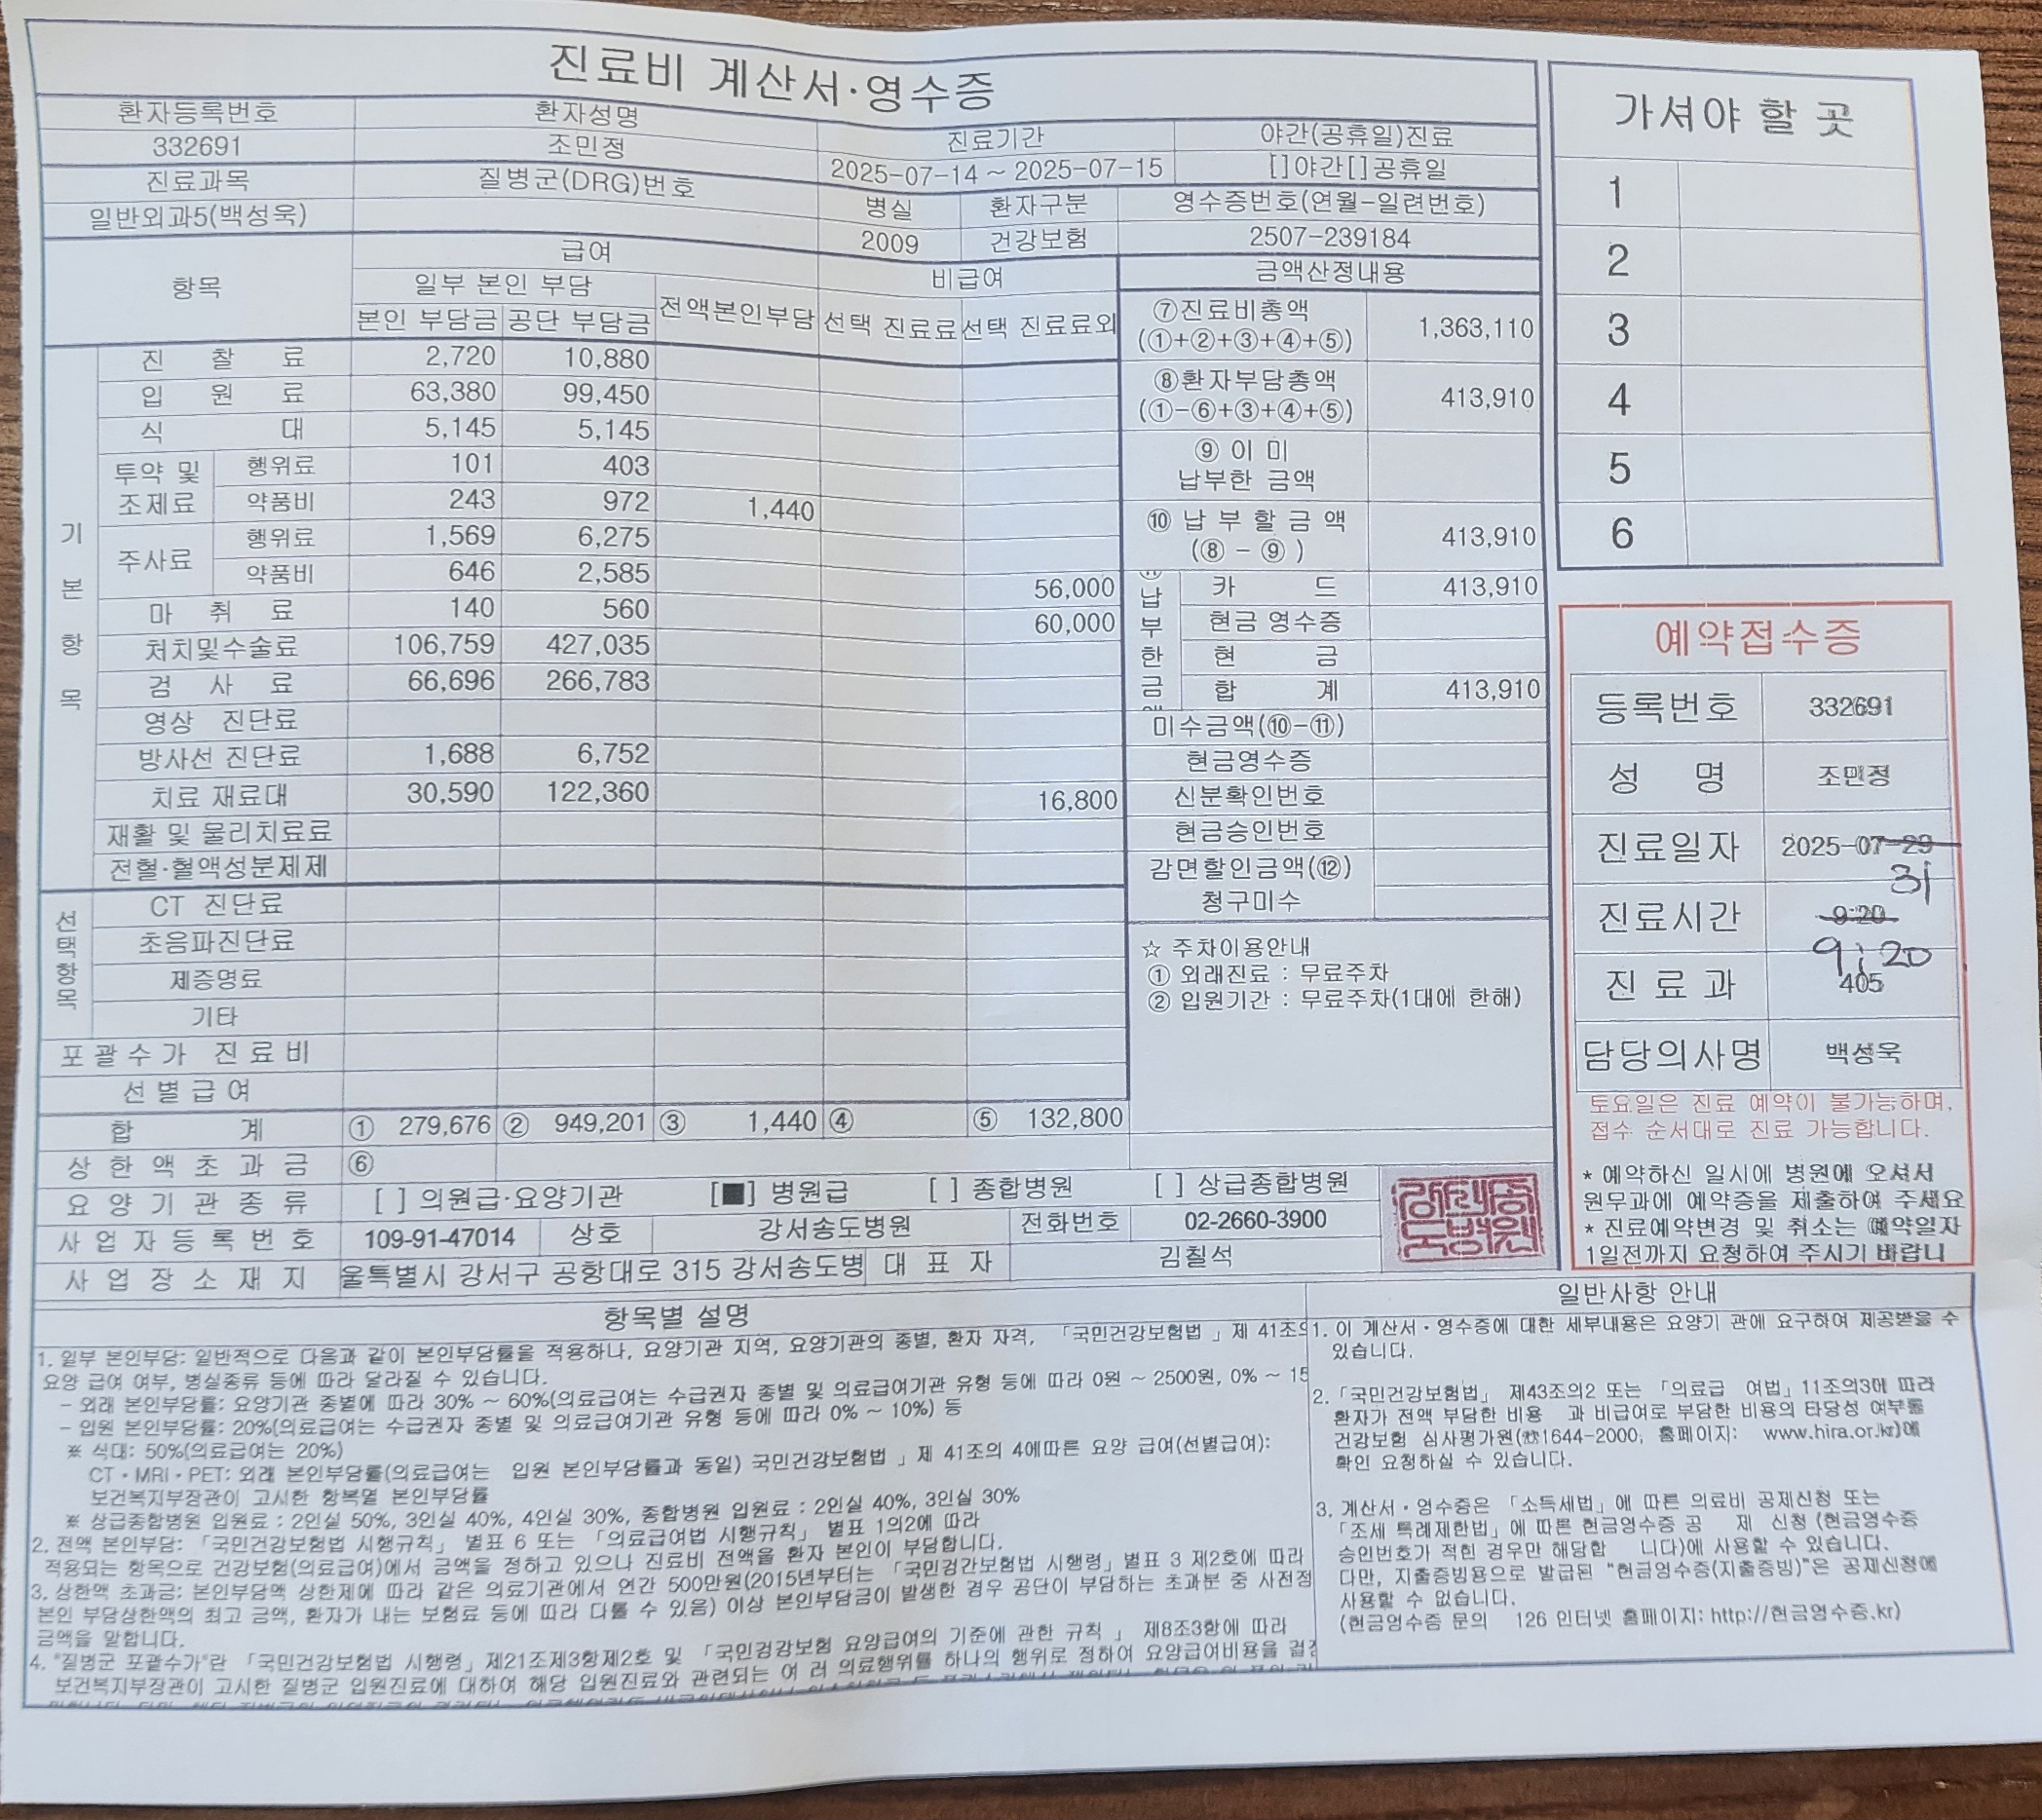 진료비 계산서·영수증
환자등록번호 환자성명 진료기간 야간(공휴일)진료
332691 조민정 2025-07-14 ~ 2025-07-15 [ ]야간[ ]공휴일
진료과목 질병군(DRG)번호 병실 환자구분 영수증번호(연월-일련번호)
일반외과5(백성욱) 2009 건강보험 2507-239184
항목 급여 비급여 금액산정내용
일부 본인 부담 전액본인부담 선택 진료료 선택 진료료외
본인 부담금 공단 부담금
기본항목
진 찰 료 2,720 10,880
입 원 료 63,380 99,450
식 대 5,145 5,145
투약 및 조제료 행위료 101 403
약품비 243 972 1,440
주사료 행위료 1,569 6,275
약품비 646 2,585 56,000
마 취 료 140 560 60,000
처치및수술료 106,759 427,035
검 사 료 66,696 266,783
영상 진단료
방사선 진단료 1,688 6,752
치료 재료대 30,590 122,360 16,800
재활 및 물리치료료
전혈·혈액성분제제
선택항목
CT 진단료
초음파진단료
제증명료
기타
포괄수가 진료비
선별급여
합 계 ① 279,676 ② 949,201 ③ 1,440 ④ ⑤ 132,800
상한액초과금 ⑥
⑦진료비총액
(①+②+③+④+⑤) 1,363,110
⑧환자부담총액
(①-⑥+③+④+⑤) 413,910
⑨ 이 미
납부한 금액
⑩ 납 부 할 금 액
(⑧ - ⑨) 413,910
납부한금
카 드 413,910
현금 영수증
현 금
합 계 413,910
미수금액(⑩-⑪)
현금영수증
신분확인번호
현금승인번호
감면할인금액(⑫)
청구미수
☆ 주차이용안내
① 외래진료 : 무료주차
② 입원기간 : 무료주차(1대에 한해)
요양기관종류 [ ] 의원급·요양기관 [■] 병원급 [ ] 종합병원 [ ] 상급종합병원
사업자등록번호 109-91-47014 상호 강서송도병원 전화번호 02-2660-3900
사업장소재지 울특별시 강서구 공항대로 315 강서송도병 대 표 자 김칠석
가셔야 할 곳
1
2
3
4
5
6
예약접수증
등록번호 332691
성 명 조민정
진료일자 2025-07-29
31
진료시간 9:20
9:20
진 료 과 405
담당의사명 백성욱
토요일은 진료 예약이 불가능하며,
접수 순서대로 진료 가능합니다.
* 예약하신 일시에 병원에 오셔서
원무과에 예약증을 제출하여 주세요
* 진료예약변경 및 취소는 예약일자
1일전까지 요청하여 주시기 바랍니
항목별 설명
1. 일부 본인부담: 일반적으로 다음과 같이 본인부담률을 적용하나, 요양기관 지역, 요양기관의 종별, 환자 자격, 「국민건강보험법 」제 41조의
요양 급여 여부, 병실종류 등에 따라 달라질 수 있습니다.
- 외래 본인부담률: 요양기관 종별에 따라 30% ~ 60%(의료급여는 수급권자 종별 및 의료급여기관 유형 등에 따라 0원 ~ 2500원, 0% ~ 15
- 입원 본인부담률: 20%(의료급여는 수급권자 종별 및 의료급여기관 유형 등에 따라 0% ~ 10%) 등
※ 식대: 50%(의료급여는 20%)
CT·MRI·PET: 외래 본인부담률(의료급여는 입원 본인부담률과 동일) 국민건강보험법 」제 41조의 4에따른 요양 급여(선별급여):
보건복지부장관이 고시한 항목별 본인부담률
※ 상급종합병원 입원료 : 2인실 50%, 3인실 40%, 4인실 30%, 종합병원 입원료 : 2인실 40%, 3인실 30%
2. 전액 본인부담: 「국민건강보험법 시행규칙」 별표 6 또는 「의료급여법 시행규칙」 별표 1의2에 따라
적용되는 항목으로 건강보험(의료급여)에서 금액을 정하고 있으나 진료비 전액을 환자 본인이 부담합니다.
3. 상한액 초과금: 본인부담액 상한제에 따라 같은 의료기관에서 연간 500만원(2015년부터는 「국민건강보험법 시행령」별표 3 제2호에 따라
본인 부담상한액의 최고 금액, 환자가 내는 보험료 등에 따라 다를 수 있음) 이상 본인부담금이 발생한 경우 공단이 부담하는 초과분 중 사전정
금액을 말합니다.
4. "질병군 포괄수가"란 「국민건강보험법 시행령」제21조제3항제2호 및 「국민건강보험 요양급여의 기준에 관한 규칙 」 제8조3항에 따라
보건복지부장관이 고시한 질병군 입원진료에 대하여 해당 입원진료와 관련되는 여 러 의료행위를 하나의 행위로 정하여 요양급여비용을 결
일반사항 안내
1. 이 계산서·영수증에 대한 세부내용은 요양기 관에 요구하여 제공받을 수
있습니다.
2.「국민건강보험법」 제43조의2 또는 「의료급 여법」11조의3에 따라
환자가 전액 부담한 비용 과 비급여로 부담한 비용의 타당성 여부를
건강보험 심사평가원(☎1644-2000, 홈페이지: www.hira.or.kr)에
확인 요청하실 수 있습니다.
3. 계산서·영수증은 「소득세법」에 따른 의료비 공제신청 또는
「조세 특례제한법」에 따른 현금영수증 공 제 신청 (현금영수증
승인번호가 적힌 경우만 해당합 니다)에 사용할 수 있습니다.
다만, 지출증빙용으로 발급된 "현금영수증(지출증빙)"은 공제신청에
사용할 수 없습니다.
(현금영수증 문의 126 인터넷 홈페이지: http://현금영수증.kr)